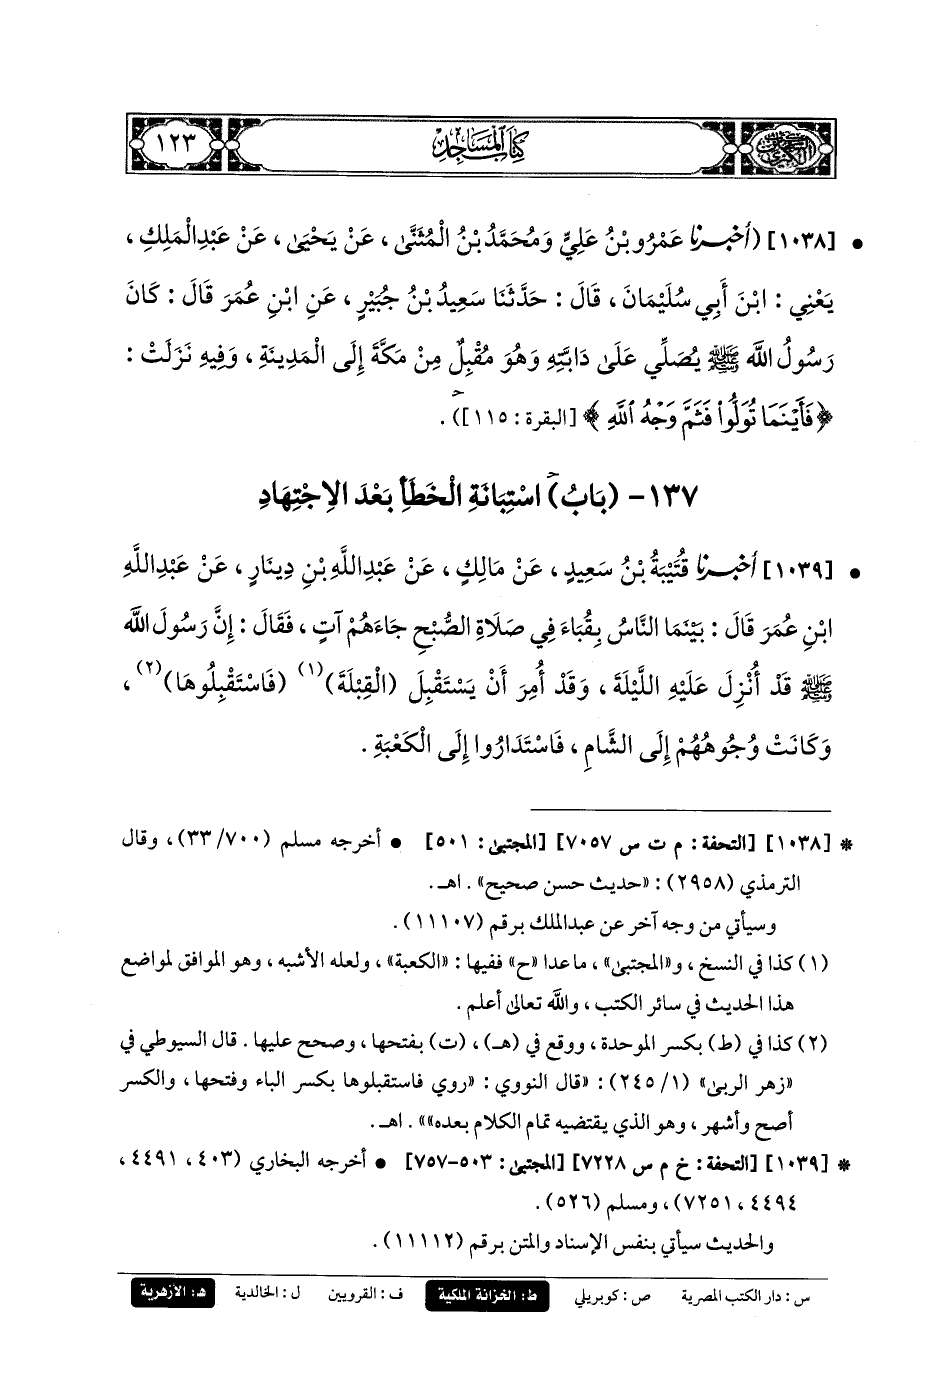 كتاب المساجد ١٢٣
• [١٠٣٨] (أخبرنا عَمْرُو بْنُ عَلِيٍّ وَمُحَمَّدُ بْنُ الْمُثَنَّىٰ، عَنْ يَحْيَىٰ، عَنْ عَبْدِالْمَلِكِ،
يَعْنِي: ابْنَ أَبِي سُلَيْمَانَ، قَالَ: حَدَّثَنَا سَعِيدُ بْنُ جُبَيْرٍ، عَنِ ابْنِ عُمَرَ قَالَ: كَانَ
رَسُولُ اللَّه ﷺ يُصَلِّي عَلَىٰ دَابَّتِهِ وَهُوَ مُقْبِلٌ مِنْ مَكَّةَ إِلَى الْمَدِينَةِ، وَفِيهِ نَزَلَتْ:
﴿فَأَيْنَمَا تُوَلُّواْ فَثَمَّ وَجْهُ ٱللَّهِ﴾ [البقرة: ١١٥])ح.
١٣٧- (بَابُ)ح اسْتِبَانَةِ الْخَطَأِ بَعْدَ الِاجْتِهَادِ
• [١٠٣٩] أخبرنا قُتَيْبَةُ بْنُ سَعِيدٍ، عَنْ مَالِكٍ، عَنْ عَبْدِاللَّهِ بْنِ دِينَارٍ، عَنْ عَبْدِاللَّهِ
ابْنِ عُمَرَ قَالَ: بَيْنَمَا النَّاسُ بِقُبَاءَ فِي صَلَاةِ الصُّبْحِ جَاءَهُمْ آتٍ، فَقَالَ: إِنَّ رَسُولَ اللَّه
ﷺ قَدْ أُنْزِلَ عَلَيْهِ اللَّيْلَةَ، وَقَدْ أُمِرَ أَنْ يَسْتَقْبِلَ (الْقِبْلَةَ)(١) (فَاسْتَقْبِلُوهَا)(٢)،
وَكَانَتْ وُجُوهُهُمْ إِلَى الشَّامِ، فَاسْتَدَارُوا إِلَى الْكَعْبَةِ.
* [١٠٣٨] [التحفة: م ت س ٧٠٥٧] [المجتبىٰ: ٥٠١] • أخرجه مسلم (٧٠٠/ ٣٣)، وقال
الترمذي (٢٩٥٨): «حديث حسن صحيح». اهـ.
وسيأتي من وجه آخر عن عبدالملك برقم (١١١٠٧).
(١) كذا في النسخ، و«المجتبىٰ»، ماعدا «ح» ففيها: «الكعبة»، ولعله الأشبه، وهو الموافق لمواضع
هذا الحديث في سائر الكتب، واللَّه تعالىٰ أعلم.
(٢) كذا في (ط) بكسر الموحدة، ووقع في (هـ)، (ت) بفتحها، وصحح عليها. قال السيوطي في
«زهر الربىٰ» (١/ ٢٤٥): «قال النووي: «روي فاستقبلوها بكسر الباء وفتحها، والكسر
أصح وأشهر، وهو الذي يقتضيه تمام الكلام بعده»». اهـ.
* [١٠٣٩] [التحفة: خ م س ٧٢٢٨] [المجتبىٰ: ٥٠٣-٧٥٧] • أخرجه البخاري (٤٠٣، ٤٤٩١،
٤٤٩٤، ٧٢٥١)، ومسلم (٥٢٦).
والحديث سيأتي بنفس الإسناد والمتن برقم (١١١١٢).
س: دار الكتب المصرية ص: كوبريلي ط: الخزانة الملكية ف: القرويين ل: الخالدية هـ: الأزهرية